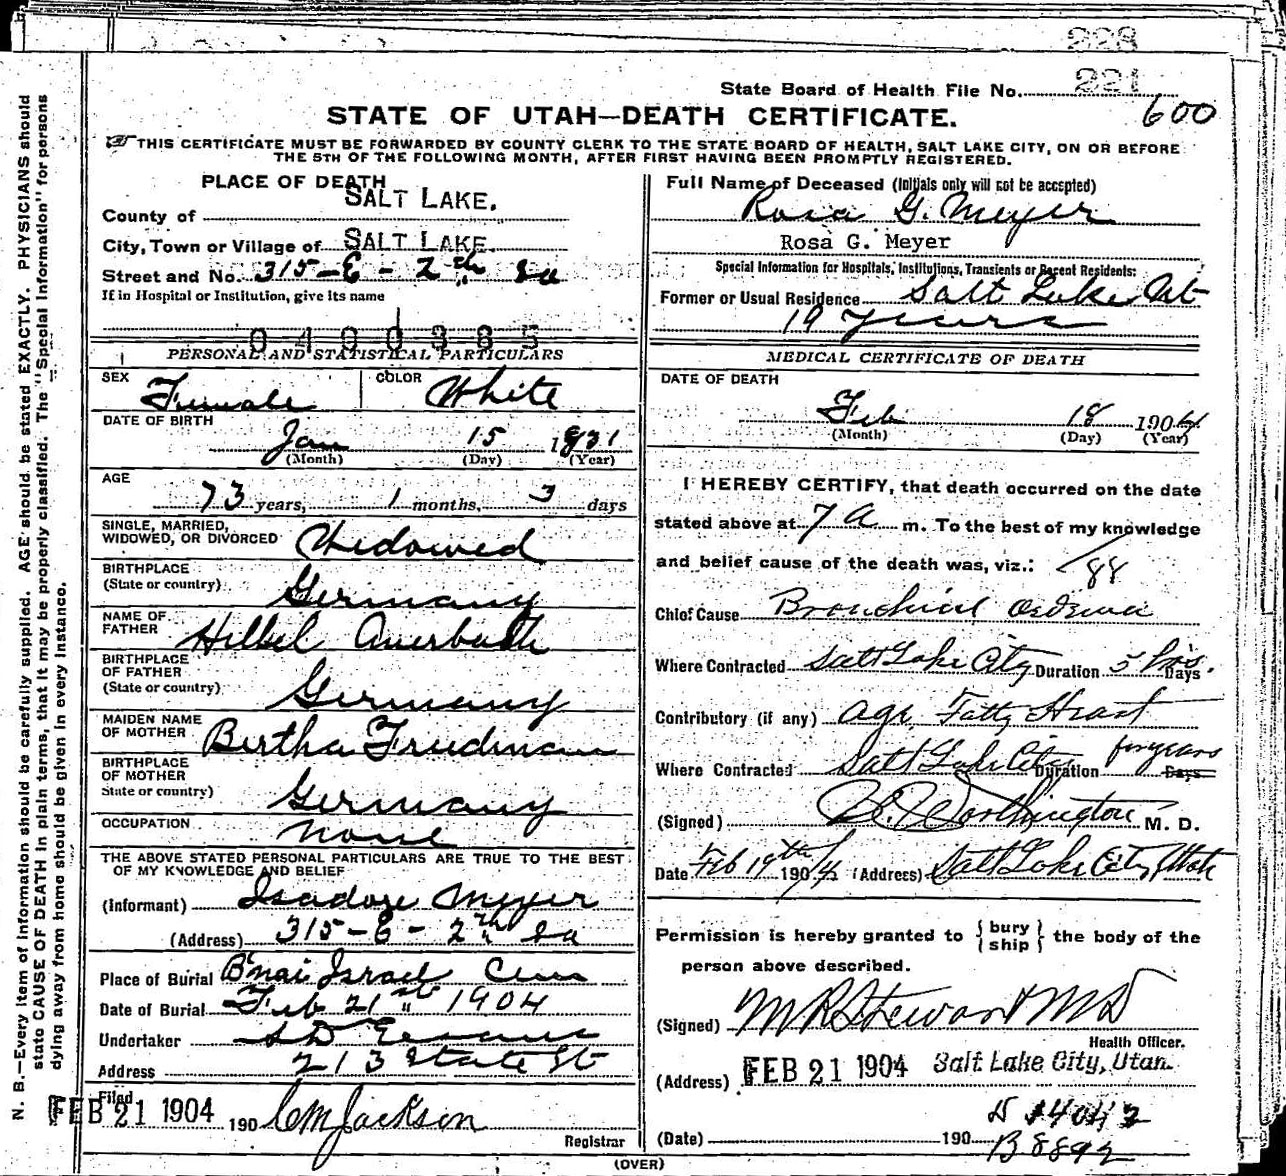 228
State Board of Health File No. 221
600
STATE OF UTAH—DEATH CERTIFICATE.
THIS CERTIFICATE MUST BE FORWARDED BY COUNTY CLERK TO THE STATE BOARD OF HEALTH, SALT LAKE CITY, ON OR BEFORE
THE 5TH OF THE FOLLOWING MONTH, AFTER FIRST HAVING BEEN PROMPTLY REGISTERED.
N. B.—Every item of information should be carefully supplied. AGE should be stated EXACTLY. PHYSICIANS should
state CAUSE OF DEATH in plain terms, that it may be properly classified. The "Special Information" for persons
dying away from home should be given in every instance.
PLACE OF DEATH
County of SALT LAKE.
City, Town or Village of SALT LAKE.
Street and No. 315-E-2nd So
If in Hospital or Institution, give its name
0490385
PERSONAL AND STATISTICAL PARTICULARS
SEX Female COLOR White
DATE OF BIRTH
Jan 15 1831
(Month) (Day) (Year)
AGE
73 years, 1 months, 3 days
SINGLE, MARRIED,
WIDOWED, OR DIVORCED Widowed
BIRTHPLACE
(State or country) Germany
NAME OF
FATHER Hillel Auerbach
BIRTHPLACE
OF FATHER
(State or country) Germany
MAIDEN NAME
OF MOTHER Bertha Friedman
BIRTHPLACE
OF MOTHER
State or country) Germany
OCCUPATION None
THE ABOVE STATED PERSONAL PARTICULARS ARE TRUE TO THE BEST
OF MY KNOWLEDGE AND BELIEF
(Informant) Isadore Meyer
(Address) 315-E-2nd So
Place of Burial B'nai Israel Cem
Date of Burial Feb 21st 1904
Undertaker S D Evans
Address 213 State St
Filed
FEB 21 1904 190 C M Jackson
Registrar
Full Name of Deceased (Initials only will not be accepted)
Rosa G. Meyer
Rosa G. Meyer
Special Information for Hospitals, Institutions, Transients or Recent Residents:
Former or Usual Residence Salt Lake Ut
19 years
MEDICAL CERTIFICATE OF DEATH
DATE OF DEATH
Feb 18 1904
(Month) (Day) (Year)
I HEREBY CERTIFY, that death occurred on the date
stated above at 7 A m. To the best of my knowledge
and belief cause of the death was, viz.: 88
Chief Cause Bronchial Oedema
Where Contracted Salt Lake City Duration 5 hrs. Days
Contributory (if any) Age Fatty Heart
Where Contracted Salt Lake City Duration for years Days
(Signed) Worthington M. D.
Date Feb 19th 1904 (Address) Salt Lake City Utah
Permission is hereby granted to { bury ship } the body of the
person above described.
(Signed) M R Stewart MD
Health Officer.
(Address) FEB 21 1904 Salt Lake City, Utah.
(Date) 190
B 8892
(OVER)